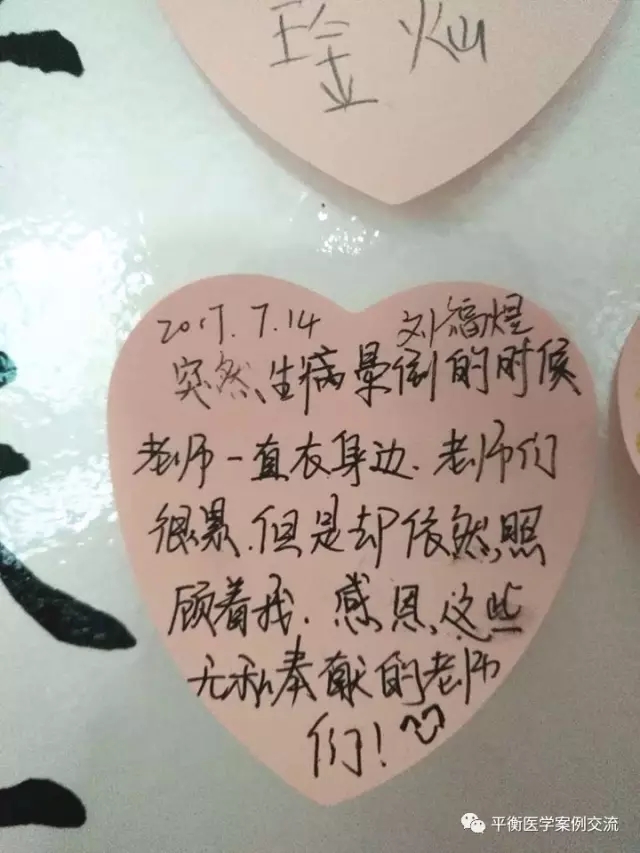 灿
2017.7.14 刘福煌
突然生病晕倒的时候
老师一直在身边.老师们
很累.但是却依然照
顾着我.感恩这些
无私奉献的老师
们!
平衡医学案例交流